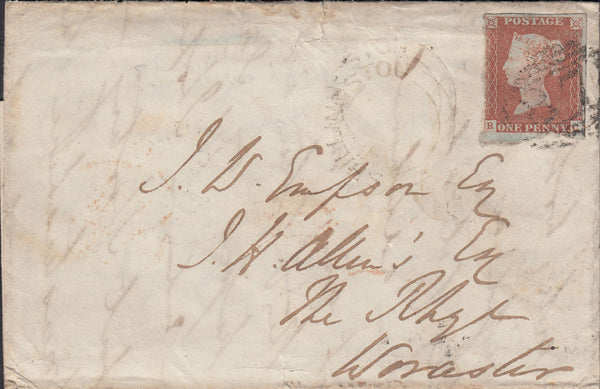 POSTAGE
R ONE PENNY
J. W. Empson Eq
J. H. Allen's Eq
The Rhyd
Worcester